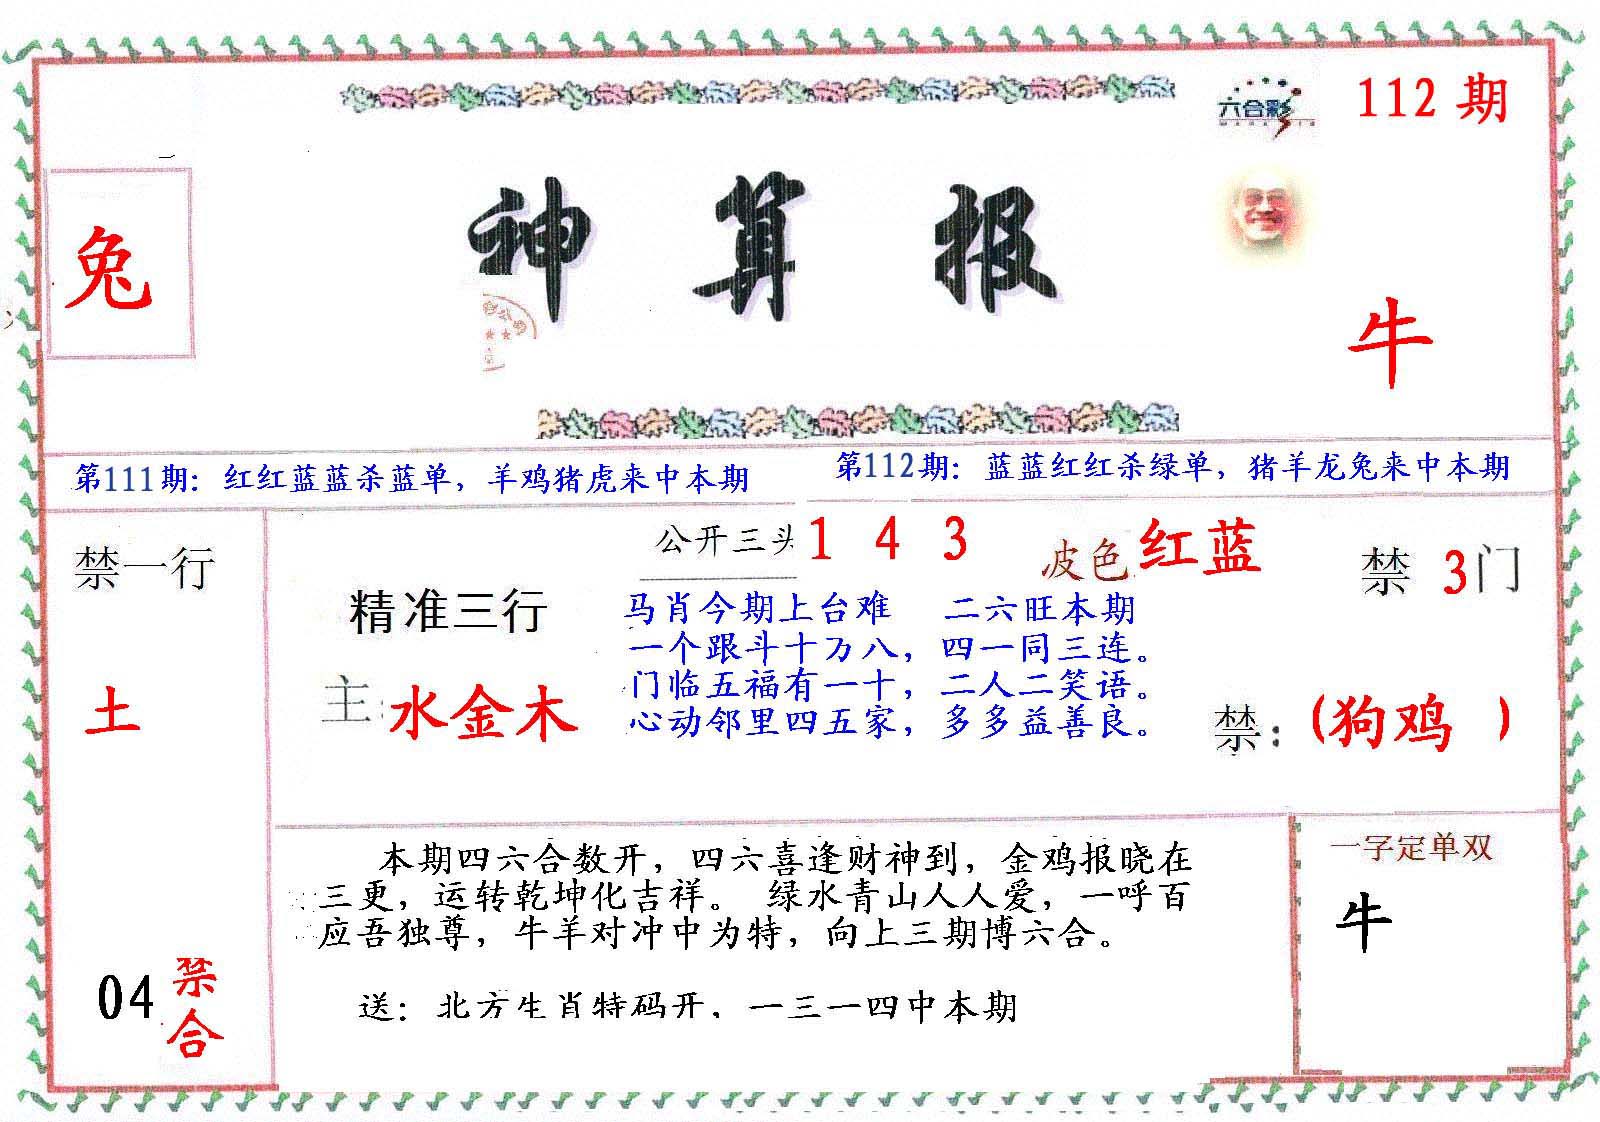 六合彩
112期
兔
神算报
牛
第111期：红红蓝蓝杀蓝单，羊鸡猪虎来中本期
第112期：蓝蓝红红杀绿单，猪羊龙兔来中本期
禁一行
土
04禁合
精准三行
主:水金木
公开三头1 4 3
波色:红蓝
禁3门
马肖今期上台难 二六旺本期
一个跟斗十万八，四一同三连。
门临五福有一十，二人二笑语。
心动邻里四五家，多多益善良。
禁：(狗鸡 )
本期四六合数开，四六喜逢财神到，金鸡报晓在
三更，运转乾坤化吉祥。 绿水青山人人爱，一呼百
应吾独尊，牛羊对冲中为特，向上三期博六合。
送：北方生肖特码开，一三一四中本期
一字定单双
牛